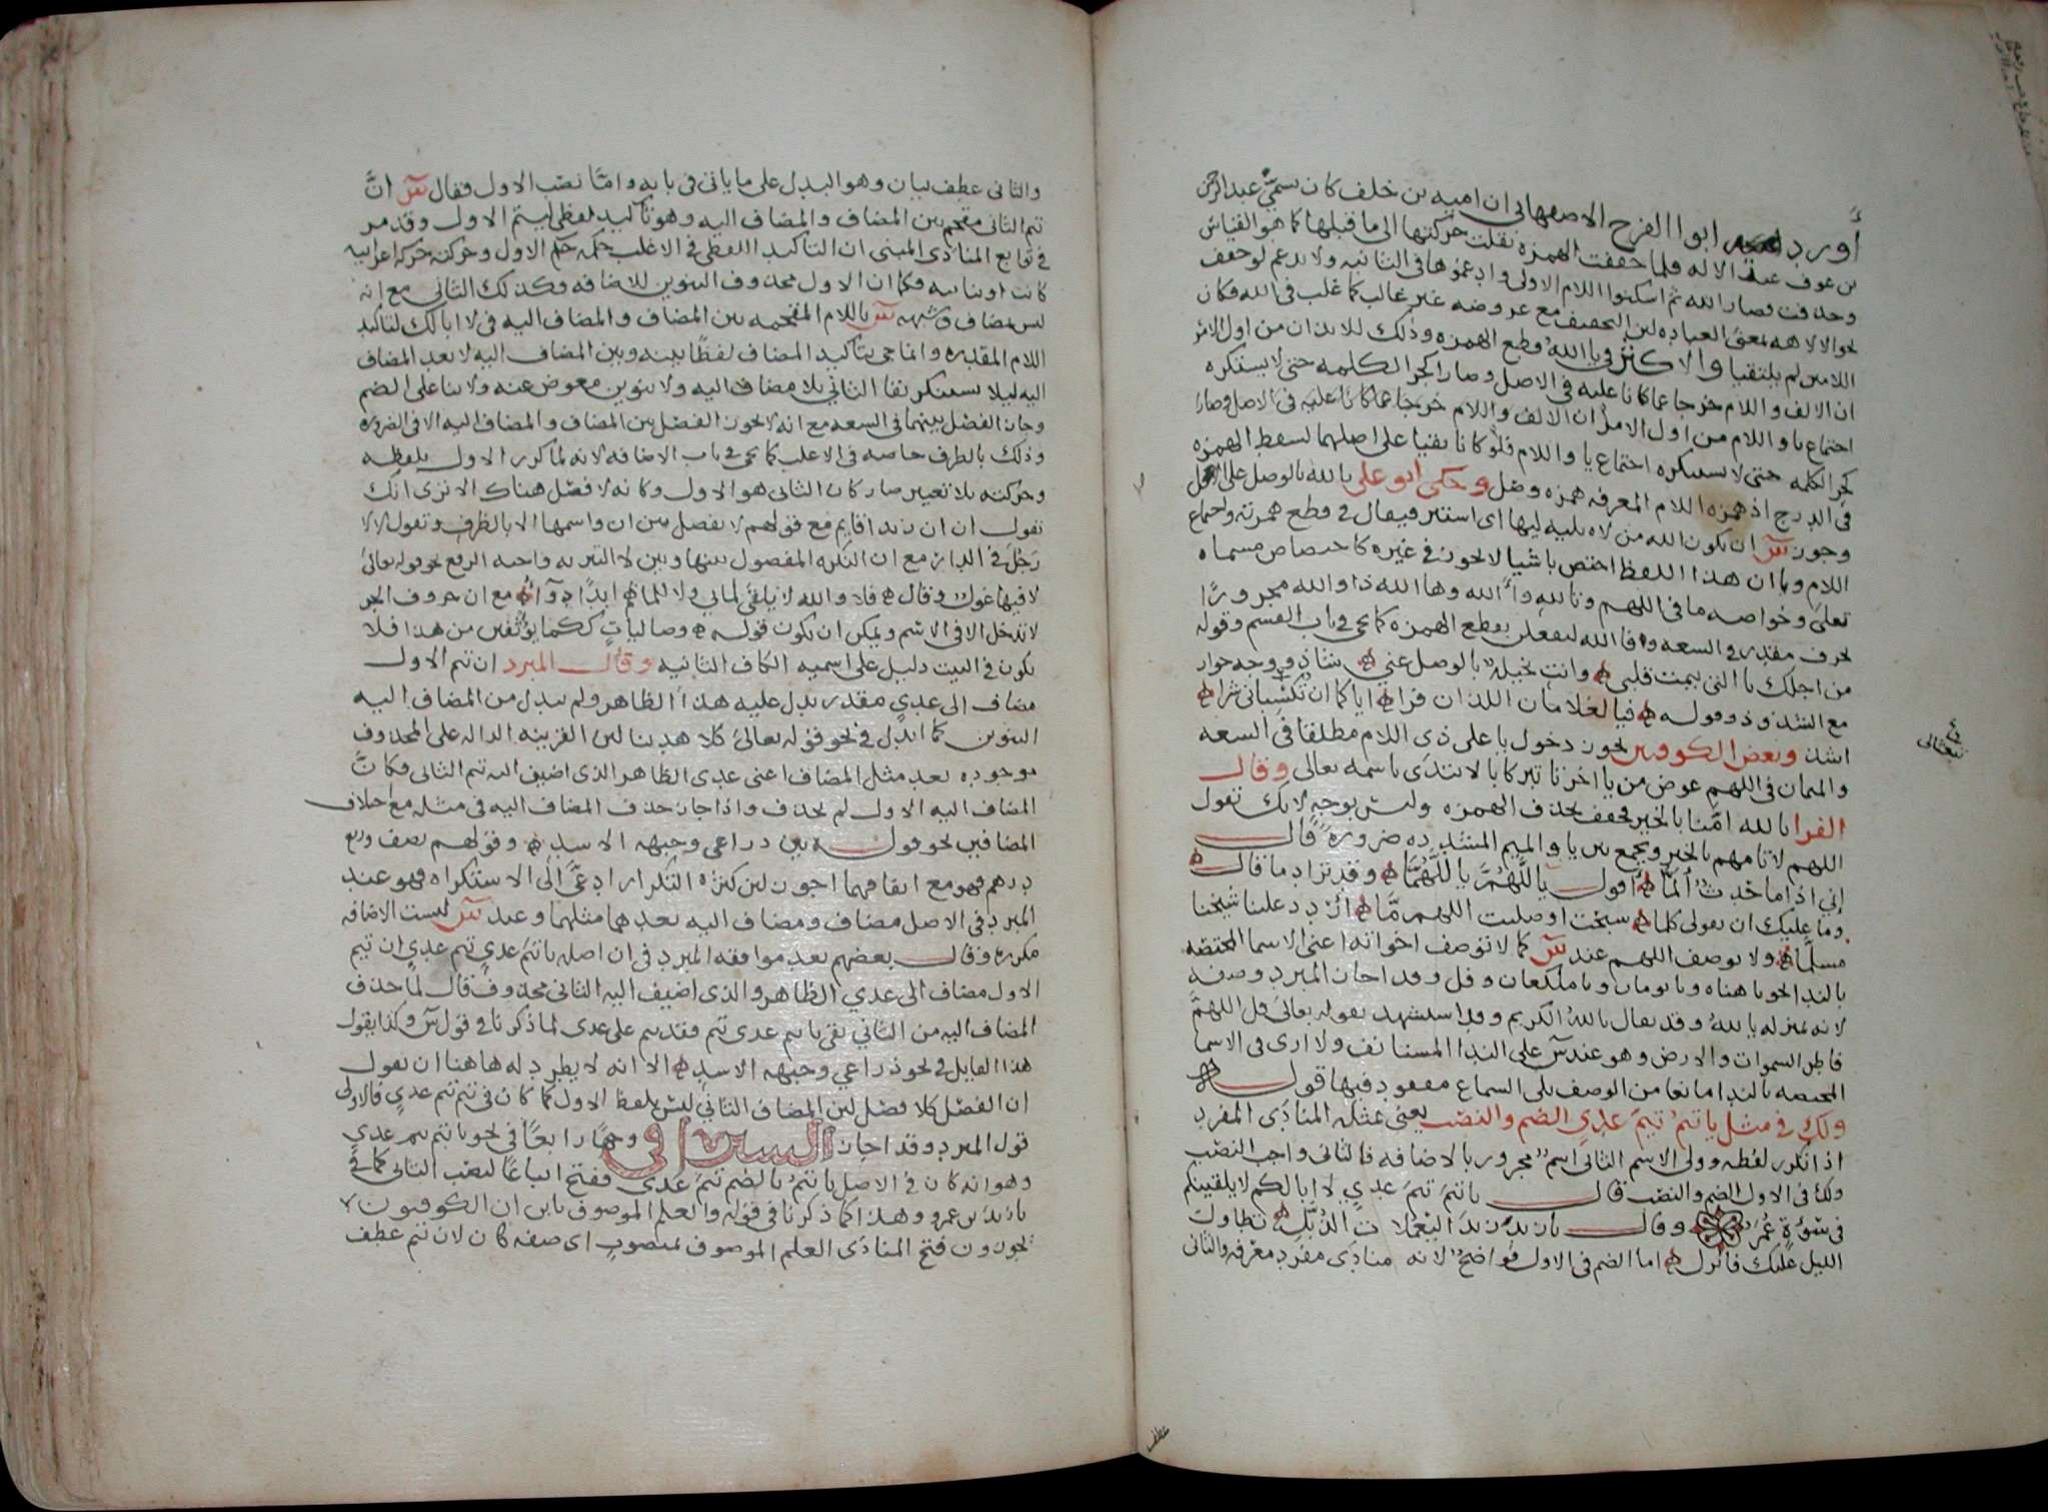 أورد ابوا الفرح الاصفهانى ان اميه بن خلف كان يسمّى عبد الرحمن
بن عوف عبد الاله فلما خففت الهمزه نقلت حركتها الى ما قبلها كما هو القياس
وحذفت فصار الله ثم اسكنوا اللام الاولى وادغموها فى الثانيه ولا يدغم لو خفف
نحو الالاهه بمعنى العباده لين التخفيف مع عروضه غير غالب كما غلب فى الله فكان
اللامين لم يلتقيا والاكثر فى يا اللهُ قطع الهمزه وذلك للايذان من اول الامر
ان الالف واللام خرجا عما كانا عليه فى الاصل وصارا كجز الكلمه حتى لا يستكره
اجتماع يا واللام من اول الامر ان الالف واللام خرجا عما كانا عليه فى الاصل وصارا
كجز الكلمه حتى لا يستكره اجتماع يا واللام فلو كانا بقيا على اصلهما لسقط الهمزه
فى الدرج اذ همزه اللام المعرفه همزه وصل وحكى ابو على يا لله بالوصل على الاصل
وجوز س ان يكون الله من لاه يليه ليها اى استتر فيقال فى قطع همزته واجتماع
اللام ويا ان هذا اللفظ اختص باشيا لا تجوز فى غيره كاختصاص مسماه
تعلى وخواصه ما فى اللهم وتالله وأالله وها الله ذا والله مجرورًا
بحرف مقدر فى السعه وافا الله لتفعلن بقطع الهمزه كما يجى فى باب القسم وقوله
من اجلك يا التى تيمت قلبى وانت بخيلهٌ بالوصل عنى شاذ ووجه جواز
مع الشذوذ وقوله فيا الغلامان اللذان فرا اياكما ان تكسباني شرا
اشذ وبعض الكوفيين يجوز دخول يا على ذى اللام مطلقا فى السعه
والميمان فى اللهم عوض من يا اخرتا تبركا بالابتدى باسمه تعالى وقال
الفرا يا الله امّنا بالخير فخفف بحذف الهمزه وليس بوجه لانك تقول
اللهم لا تامهم بالخير ويجمع بين يا والميم المشدده ضرورةً قال
إني إذا ما حَدثٌ أَلمّا أقول يا اللّهُمَّ يا اللَّهُمَّا وقد تزاد ما قال
وما عليك ان تقولى كلما سبحت او صليت اللهم مّا أرْدد علينا شيخنا
مسلّما ولا يوصف اللهم عند س كما لا توصف اخواته اعنى الاسما المختصه
بالندا نحو يا هناه ويا نومان ويا ملكعان وفل وقد اجاز المبرد وصفه
لانه بمنزله يا اللهُ وقد يقال يا اللهُ الكريم وقد استشهد بقوله تعالى قل اللهمَّ
فاطر السموات والارض وهو عند س على الندا المستانف ولا ارى فى الاسما
المختصه بالندا مانعا من الوصف بلى السماع مفقود فيها قول
ولك فى مثل يا تيمُ تيمَ عدىٍ الضم والنصب يعنى بمثله المنادَى المفرد
اذا تكرر لفظه وولى الاسم الثانى اسمٌ مجرور بالاضافه فالثانى واجب النصب
ولك فى الاول الضم والنصب قال يا تيمَ تيمَ عديٍ لا ابا لكم لا يلقينكم
فى سَوْءَةٍ عُمَرُ وقال يا زيدُ زيدَ اليَعْمَلاتِ الذُّبَّلِ تطاول
الليل عليك فانزل اما الضم فى الاول فواضحٌ لانه منادى مفرد معرفه والثانى
عطف
تعالى
والثانى عطف بيان وهو البدل على ما ياتى فى بابه وامّا نصب الاول فقال س انَّ
تيم الثانى مقحم بين المضاف والمضاف اليه وهو تاكيد لفظى لتيم الاول وقد مر
فى توابع المنادَى المبنى ان التاكيد اللفظى فى الاغلب حكمه حكم الاول وحركته حركة اعرابيه
كانت او بنائيه فكما ان الاول محذوف التنوين للاضافه فكذلك الثانى مع انه
ليس بمضاف وشبهه س باللام المقحمه بين المضاف والمضاف اليه فى لا ابا لك لتاكيد
اللام المقدره وانما جى بتاكيد المضاف لفظًا بينه وبين المضاف اليه لا بعد المضاف
اليه ليلا يستنكر بقا الثاني بلا مضاف اليه ولا تنوين معوض عنه ولا بنا على الضم
وجاز الفصل بينهما فى السعه مع انه لا يجوز الفصل بين المضاف والمضاف اليه الا فى الضروره
وذلك بالظرف خاصه فى الاغلب كما يجى فى باب الاضافه لانه لما كرر الاول بلفظه
وحركته بلا تغيير صار كان الثانى هو الاول وكانه لا فصل هناك الا ترى انك
تقول ان ان زيدا قايم مع قولهم لا يفصل بين ان واسمها الا بالظرف وتقول لا لا
رَجُلَ فى الدار مع ان النكره المفصول بينها وبين لا التبريه واجبه الرفع نحو قوله تعالى
لا فيها غول وقال فلا والله لا يلفى لمابي ولا للما بهم ابدًا دوآءُ مع ان حروف الجر
لا تدخل الا فى الاسم ويمكن ان يكون قوله وصالياتٍ ككما يؤثفين من هذا فلا
يكون فى البيت دليل على اسميه الكاف الثانيه وقال المبرد ان تيم الاول
مضاف الى عديٍ مقدر يدل عليه هذا الظاهر ولم يبدل من المضاف اليه
التنوين كما ابدل فى نحو قوله تعالىَ كلا هدينا لين القرينه الداله على المحذوف
موجوده بعد مثل المضاف اعنى عدى الظاهر الذى اضيف اليه تيم الثانى فكانَّ
المضاف اليه الاول لم يحذف واذا جاز حذف المضاف اليه فى مثله مع اختلاف
المضافين نحو قول بين ذراعى وجبهه الاسد وقولهم نصف وربع
درهم فهو مع اتفاقهما اجوز لين كثره التكرار ادعَى الى الاستكراه فهو عند
المبرد فى الاصل مضاف ومضاف اليه بعدهما مثلهما وعند س ليست الاضافه
مكرره وقال بعضهم بعد موافقه المبرد فى ان اصله يا تيمَ عديٍ تيم عديٍ ان تيم
الاول مضاف الى عدي الظاهر والذى اضيف اليه الثانى محذوف قال لما حذف
المضاف اليه من الثاني بقى يا تيم عدى تيم فقدم تيم على عدى لما ذكرنا فى قول س وكذا يقول
هذا القايل فى نحو ذراعي وجبهه الاسد الا انه لا يطرد له هاهنا ان يقول
ان الفصل كلا فصل لين المضاف الثاني ليس بلفظ الاول كما كان فى تيم تيم عدي فالاولى
قول المبرد وقد اجاز السيرافى وجهًا رابعًا فى نحو يا تيم تيم عديٍ
وهو انه كان فى الاصل يا تيمُ بالضم تيمَ عدى ففتح اتباعًا لنصب الثانى كما فى
يا زيدَ بن عمرو وهذا كما ذكرنا فى قوله والعلم الموصوف بابن ان الكوفيون لا
يجوزون فتح المنادَى العلم الموصوف بمنصوبٍ اى صفه كان لان تيم عطف